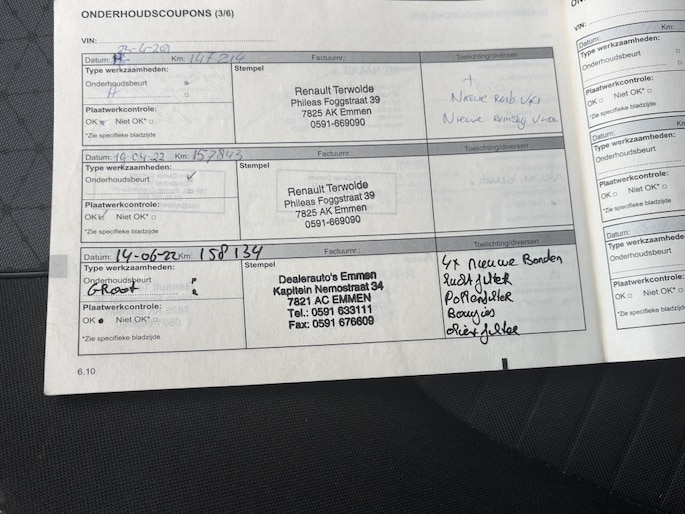 ONDERHOUDSCOUPONS (3/6)
VIN:
Datum: Km: 147214 Factuurnr.: Toelichting/diversen
Type werkzaamheden: Stempel
Onderhoudsbeurt
Plaatwerkcontrole:
OK Niet OK*
*Zie specifieke bladzijde
Renault Terwolde
Phileas Foggstraat 39
7825 AK Emmen
0591-669090
+
Nieuwe
Nieuwe
Datum: 19-04-22 Km: 157843 Toelichting/diversen
Type werkzaamheden: Stempel
Onderhoudsbeurt
Plaatwerkcontrole:
OK Niet OK*
*Zie specifieke bladzijde
Renault Terwolde
Phileas Foggstraat 39
7825 AK Emmen
0591-669090
Datum: 14-06-22 Km: 158134 Factuurnr.: Toelichting/diversen
Type werkzaamheden: Stempel
Onderhoudsbeurt
GROOT
Plaatwerkcontrole:
OK Niet OK*
*Zie specifieke bladzijde
Dealerauto's Emmen
Kapitein Nemostraat 34
7821 AC EMMEN
Tel.: 0591 633111
Fax: 0591 676609
4x nieuwe Banden
Luchtfilter
Pollenfilter
Bougies
oliefilter
6.10
VIN:
Datum: Km:
Type werkzaamheden:
Onderhoudsbeurt
Plaatwerkcontrole:
OK Niet OK*
*Zie specifieke bladzijde
Datum: Km
Type werkzaamheden:
Onderhoudsbeurt
Plaatwerkcontrole:
OK Niet OK*
*Zie specifieke bladzijde
Datum:
Type werkzaamheden
Onderhoudsbeurt
Plaatwerkcontrole:
OK Niet OK*
*Zie specifieke bladzijde